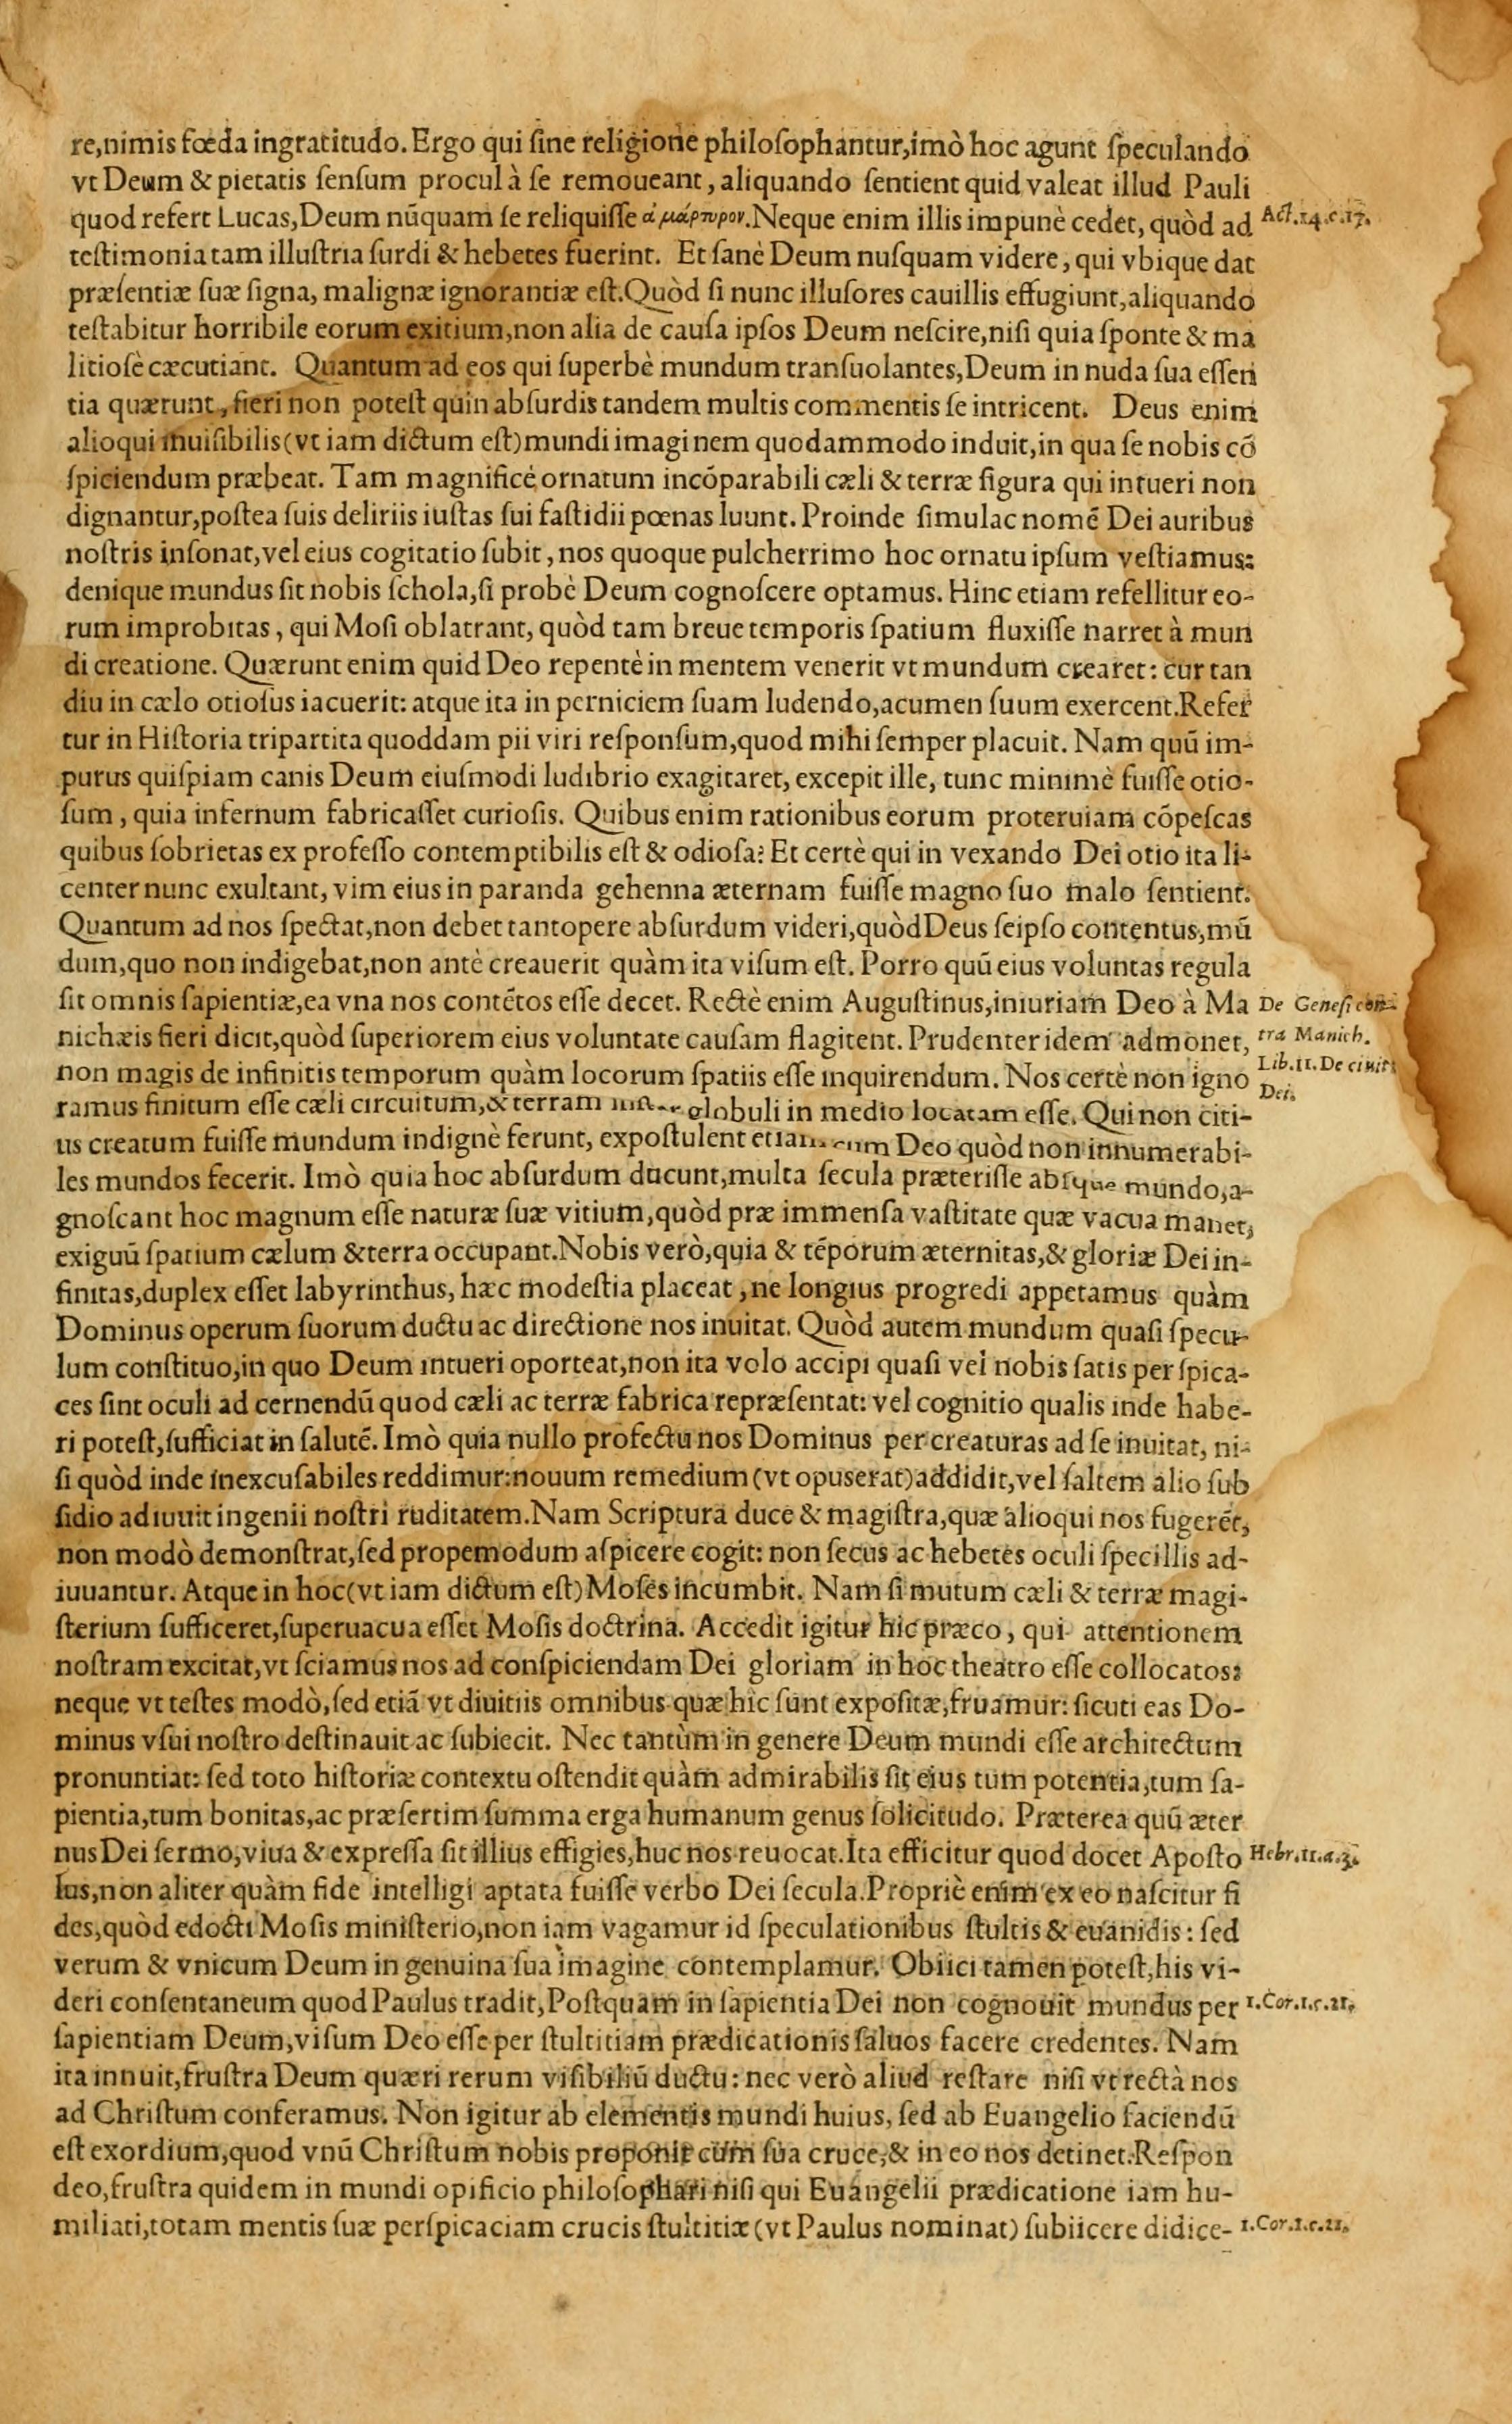 re,nimis fœda ingratitudo. Ergo qui ſine religione philoſophantur,imò hoc agunt ſpeculando
vt Deum & pietatis ſenſum procul à ſe remoueant, aliquando ſentient quid valeat illud Pauli
quod refert Lucas,Deum nūquam ſe reliquiſſe ἀμάρτυρον.Neque enim illis impunè cedet, quòd ad
Act.14.c.17.
teſtimonia tam illuſtria ſurdi & hebetes fuerint. Et ſanè Deum nuſquam videre, qui vbique dat
præſentiæ ſuæ ſigna, malignæ ignorantiæ eſt.Quòd ſi nunc illuſores cauillis effugiunt,aliquando
teſtabitur horribile eorum exitium,non alia de cauſa ipſos Deum neſcire,niſi quia ſponte & ma
litioſè cæcutiant. Quantum ad eos qui ſuperbè mundum tranſuolantes,Deum in nuda ſua eſſen
tia quærunt, fieri non poteſt quin abſurdis tandem multis commentis ſe intricent. Deus enim
alioqui inuiſibilis(vt iam dictum eſt)mundi imaginem quodammodo induit,in qua ſe nobis cō
ſpiciendum præbeat. Tam magnificè ornatum incōparabili cæli & terræ figura qui intueri non
dignantur,poſtea ſuis deliriis iuſtas ſui faſtidii pœnas luunt. Proinde ſimulac nomē Dei auribus
noſtris inſonat,vel eius cogitatio ſubit, nos quoque pulcherrimo hoc ornatu ipſum veſtiamus:
denique mundus ſit nobis ſchola,ſi probè Deum cognoſcere optamus. Hinc etiam refellitur eo-
rum improbitas, qui Moſi oblatrant, quòd tam breue temporis ſpatium fluxiſſe narret à mun
di creatione. Quærunt enim quid Deo repentè in mentem venerit vt mundum crearet: cur tan
diu in cælo otioſus iacuerit: atque ita in perniciem ſuam ludendo,acumen ſuum exercent.Refer
tur in Hiſtoria tripartita quoddam pii viri reſponſum,quod mihi ſemper placuit. Nam quū im-
purus quiſpiam canis Deum eiuſmodi ludibrio exagitaret, excepit ille, tunc minimè fuiſſe otio-
ſum, quia infernum fabricaſſet curioſis. Quibus enim rationibus eorum proteruiam cōpeſcas
quibus ſobrietas ex profeſſo contemptibilis eſt & odioſa? Et certè qui in vexando Dei otio ita li-
center nunc exultant, vim eius in paranda gehenna æternam fuiſſe magno ſuo malo ſentient.
Quantum ad nos ſpectat,non debet tantopere abſurdum videri,quòd Deus ſeipſo contentus,mū
dum,quo non indigebat,non antè creauerit quàm ita viſum eſt. Porro quū eius voluntas regula
ſit omnis ſapientiæ,ea vna nos contētos eſſe decet. Rectè enim Auguſtinus,iniuriam Deo à Ma
De Geneſi con-
nichæis fieri dicit,quòd ſuperiorem eius voluntate cauſam flagitent. Prudenter idem admonet,
tra Manich.
non magis de infinitis temporum quàm locorum ſpatiis eſſe inquirendum. Nos certè non igno
Lib.11.De ciuit.
Dei.
ramus finitum eſſe cæli circuitum,& terram globuli in medio locatam eſſe. Qui non citi-
us creatum fuiſſe mundum indignè ferunt, expoſtulent etiam cum Deo quòd non innumerabi-
les mundos fecerit. Imò quia hoc abſurdum ducunt,multa ſecula præteriſſe abſque mundo,a-
gnoſcant hoc magnum eſſe naturæ ſuæ vitium,quòd præ immenſa vaſtitate quæ vacua manet,
exiguū ſpatium cælum & terra occupant.Nobis verò,quia & tēporum æternitas,& gloriæ Dei in-
finitas,duplex eſſet labyrinthus, hæc modeſtia placeat, ne longius progredi appetamus quàm
Dominus operum ſuorum ductu ac directione nos inuitat. Quòd autem mundum quaſi ſpecu-
lum conſtituo,in quo Deum intueri oporteat,non ita volo accipi quaſi vel nobis ſatis perſpica-
ces ſint oculi ad cernendū quod cæli ac terræ fabrica repræſentat: vel cognitio qualis inde habe-
ri poteſt,ſufficiat in ſalutē. Imò quia nullo profectu nos Dominus per creaturas ad ſe inuitat, ni-
ſi quòd inde inexcuſabiles reddimur:nouum remedium (vt opus erat)addidit,vel ſaltem alio ſub
ſidio adiuuit ingenii noſtri ruditatem.Nam Scriptura duce & magiſtra,quæ alioqui nos fugerēt,
non modò demonſtrat,ſed propemodum aſpicere cogit: non ſecus ac hebetes oculi ſpecillis ad-
iuuantur. Atque in hoc(vt iam dictum eſt)Moſes incumbit. Nam ſi mutum cæli & terræ magi-
ſterium ſufficeret,ſuperuacua eſſet Moſis doctrina. Accedit igitur hic præco, qui attentionem
noſtram excitat,vt ſciamus nos ad conſpiciendam Dei gloriam in hoc theatro eſſe collocatos:
neque vt teſtes modò,ſed etiā vt diuitiis omnibus quæ hic ſunt expoſitæ,fruamur: ſicuti eas Do-
minus vſui noſtro deſtinauit ac ſubiecit. Nec tantùm in genere Deum mundi eſſe architectum
pronuntiat: ſed toto hiſtoriæ contextu oſtendit quàm admirabilis ſit eius tum potentia,tum ſa-
pientia,tum bonitas,ac præſertim ſumma erga humanum genus ſolicitudo. Præterea quū æter
nus Dei ſermo,viua & expreſſa ſit illius effigies,huc nos reuocat.Ita efficitur quod docet Apoſto
Hebr.11.a.3.
lus,non aliter quàm fide intelligi aptata fuiſſe verbo Dei ſecula.Propriè enim ex eo naſcitur fi
des,quòd edocti Moſis miniſterio,non iam vagamur id ſpeculationibus ſtultis & euanidis: ſed
verum & vnicum Deum in genuina ſua imagine contemplamur. Obiici tamen poteſt,his vi-
deri conſentaneum quod Paulus tradit,Poſtquam in ſapientia Dei non cognouit mundus per
1.Cor.1.c.21.
ſapientiam Deum,viſum Deo eſſe per ſtultitiam prædicationis ſaluos facere credentes. Nam
ita innuit,fruſtra Deum quæri rerum viſibiliū ductu: nec verò aliud reſtare niſi vt rectà nos
ad Chriſtum conferamus. Non igitur ab elementis mundi huius, ſed ab Euangelio faciendū
eſt exordium,quod vnū Chriſtum nobis proponit cum ſua cruce,& in eo nos detinet.Reſpon
deo,fruſtra quidem in mundi opificio philoſophari niſi qui Euangelii prædicatione iam hu-
miliati,totam mentis ſuæ perſpicaciam crucis ſtultitiæ (vt Paulus nominat) ſubiicere didice-
1.Cor.1.c.21.